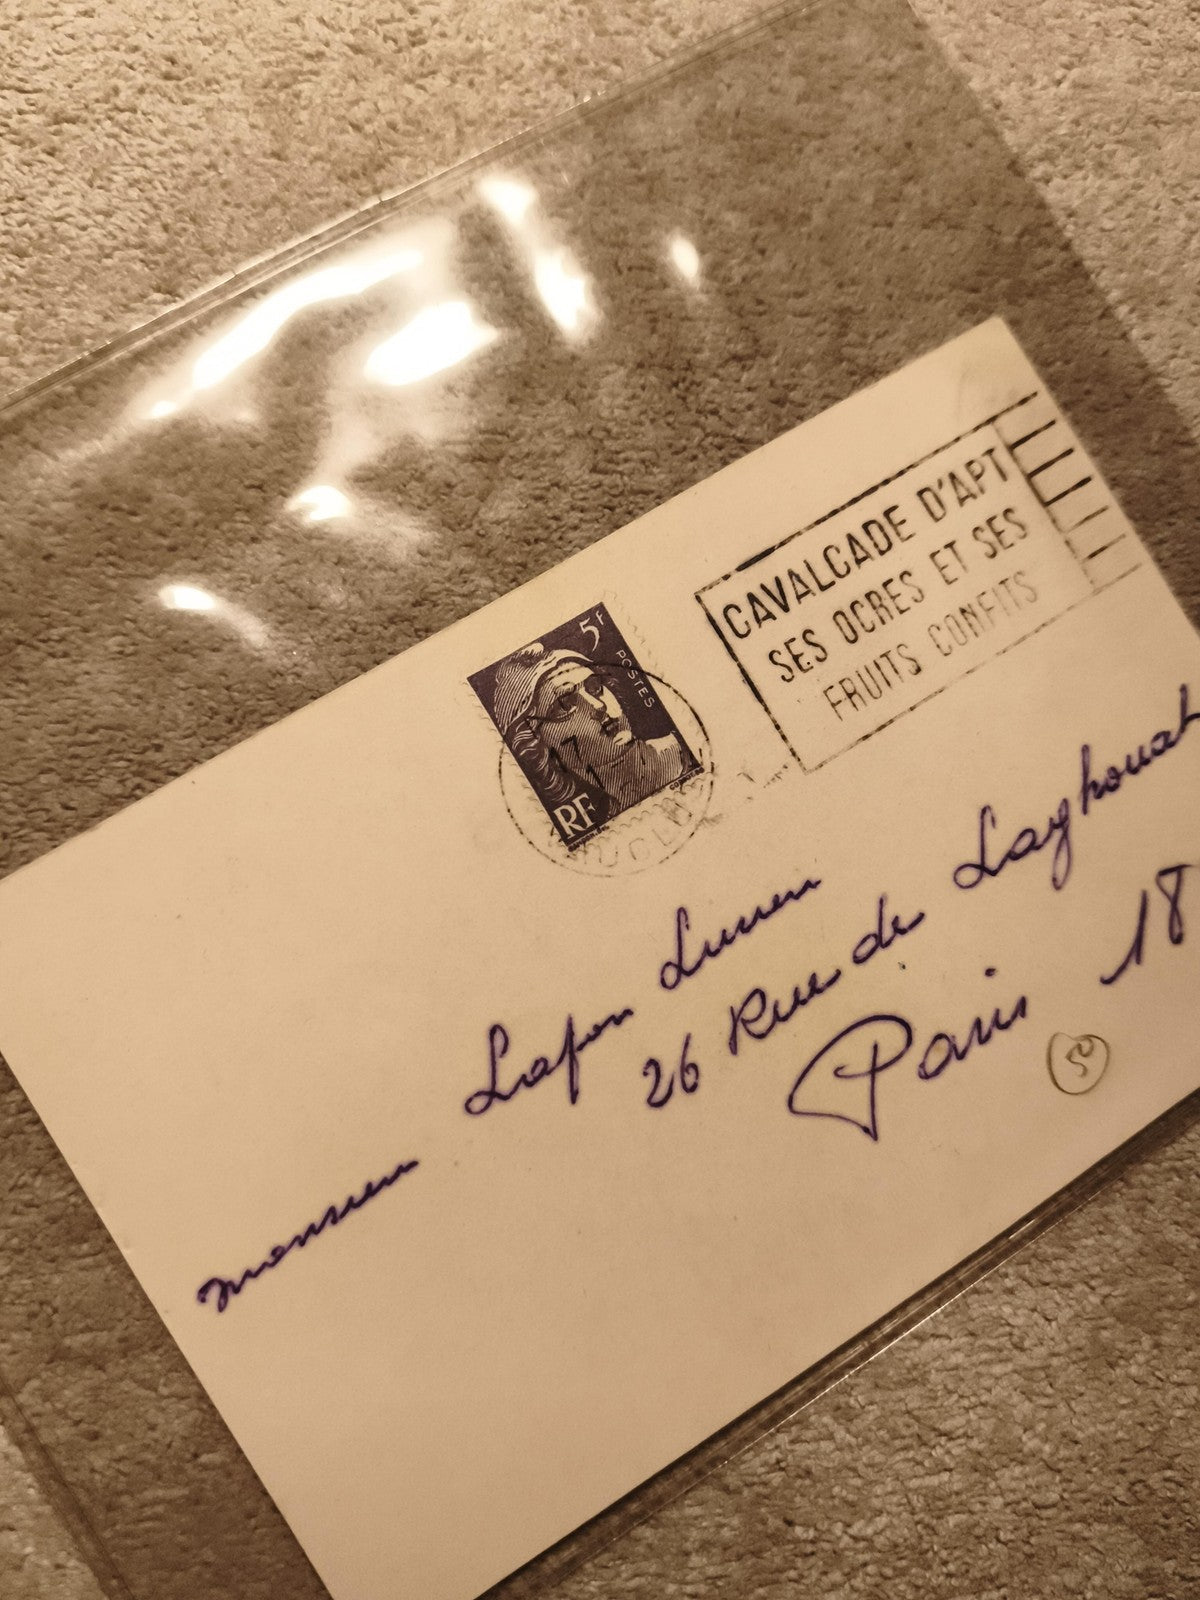 5F
POSTES
RF
17
1
CAVALCADE D'APT
SES OCRES ET SES
FRUITS CONFITS
monsieur Lafon Lucien
26 Rue de Laghouat
Paris 18
50